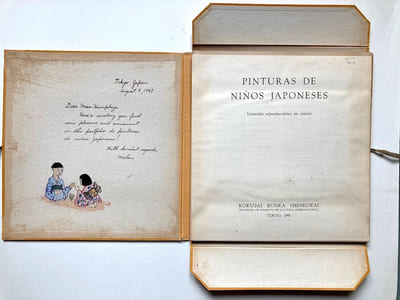 Tokyo, Japan
August 9, 1947
Dear Miss Humphrey
Here's wishing you find
much pleasure and amusement
in this portfolio de pinturas
de niños Japoneses.
With kindest regards,
PINTURAS DE
NIÑOS JAPONESES
Veintidos reproducciones en colores
KOKUSAI BUNKA SHINKOKAI
(SOCIEDAD DE FOMENTO DE CULTURA INTERNACIONAL)
TOKYO, 1941